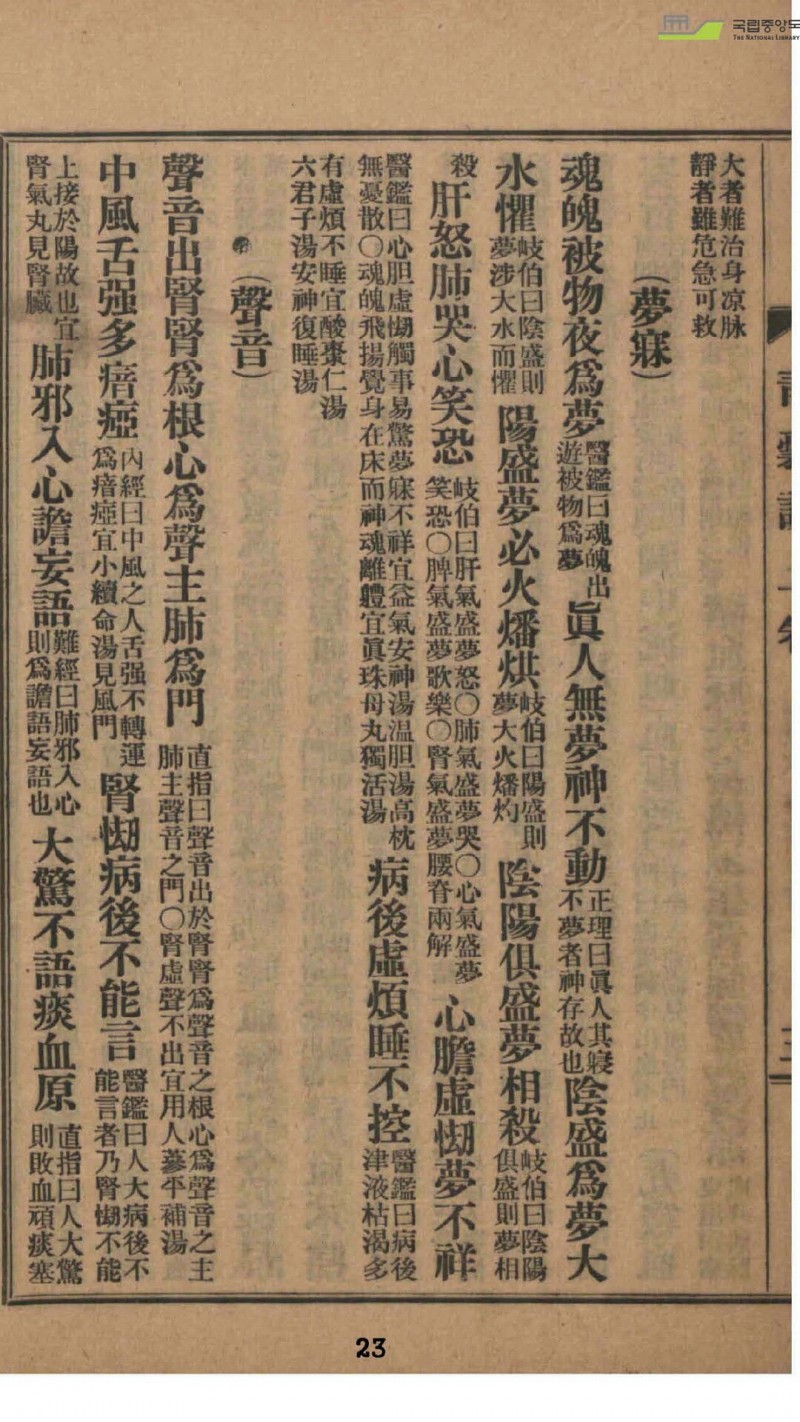 국립중앙도
THE NATIONAL LIBRARY
大者難治身凉脉
靜者雖危急可救
(夢寐)
魂魄被物夜爲夢
醫鑑曰魂魄出
遊被物爲夢
眞人無夢神不動
正理曰眞人其寢
不夢者神存故也
陰盛爲夢大
水懼
岐伯曰陰盛則
夢涉大水而懼
陽盛夢必火燔烘
岐伯曰陽盛則
夢大火燔灼
陰陽俱盛夢相殺
岐伯曰陰陽
俱盛則夢相
殺
肝怒肺哭心笑恐
岐伯曰肝氣盛夢怒〇肺氣盛夢哭〇心氣盛夢
笑恐〇脾氣盛夢歌樂〇腎氣盛夢腰脊兩解
心膽虛㤼夢不祥
醫鑑曰心胆虛㤼觸事易驚夢寐不祥宜益氣安神湯温胆湯高枕
無憂散〇魂魄飛揚覺身在床而神魂離軆宜眞珠母丸獨活湯
病後虛煩睡不控
醫鑑曰病後
津液枯渴多
有虛煩不睡宜酸棗仁湯
六君子湯安神復睡湯
(聲音)
聲音出腎腎爲根心爲聲主肺爲門
直指曰聲音出於腎腎爲聲音之根心爲聲音之主
肺主聲音之門〇腎虛聲不出宜用人蔘平補湯
中風舌强多瘖瘂
內經曰中風之人舌强不轉運
爲瘖瘂宜小續命湯見風門
腎㤼病後不能言
醫鑑曰人大病後不
能言者乃腎㤼不能
上接於陽故也宜
腎氣丸見腎臟
肺邪入心譫妄語
難經曰肺邪入心
則爲譫語妄語也
大驚不語痰血原
直指曰人大驚
則敗血頑痰塞
23